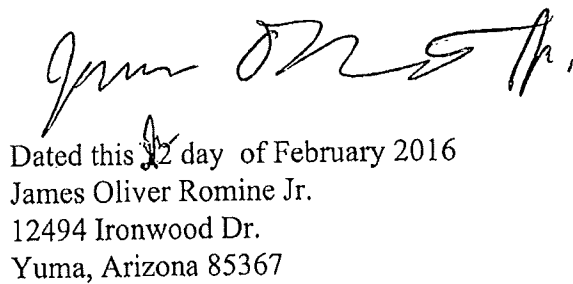 James Jr.
Dated this day of February 2016
James Oliver Romine Jr.
12494 Ironwood Dr.
Yuma, Arizona 85367